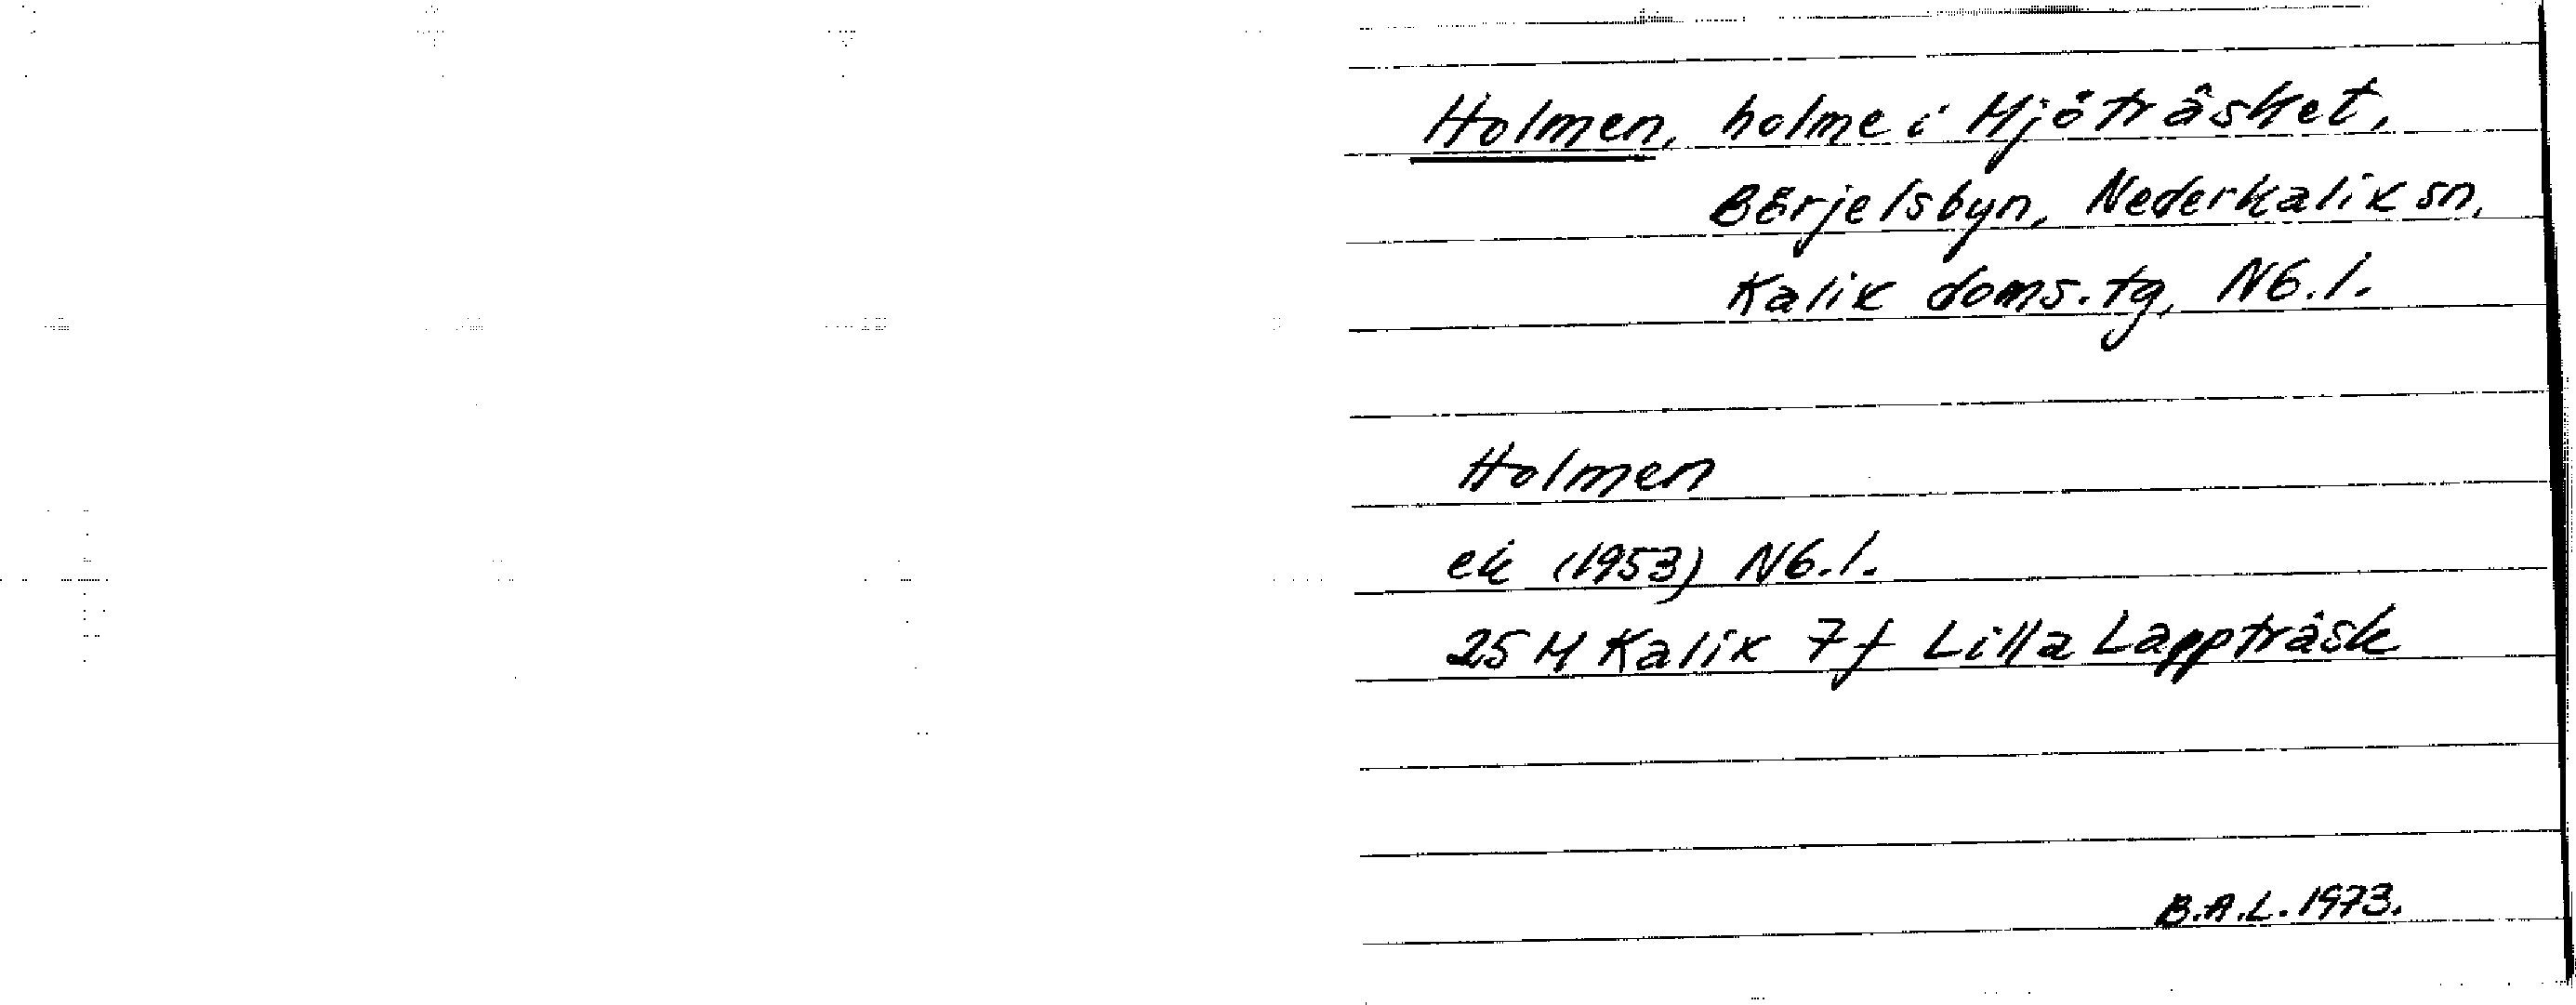 Holmen, holme i Mjöträsket,
Börjelsbyn, Nederkalix sn,
Kalix doms. tg, Nb. l.
Holmen
ek (1953) Nb. l.
25 M Kalix 7 f Lilla Lappträsk
B.A.L. 1973.